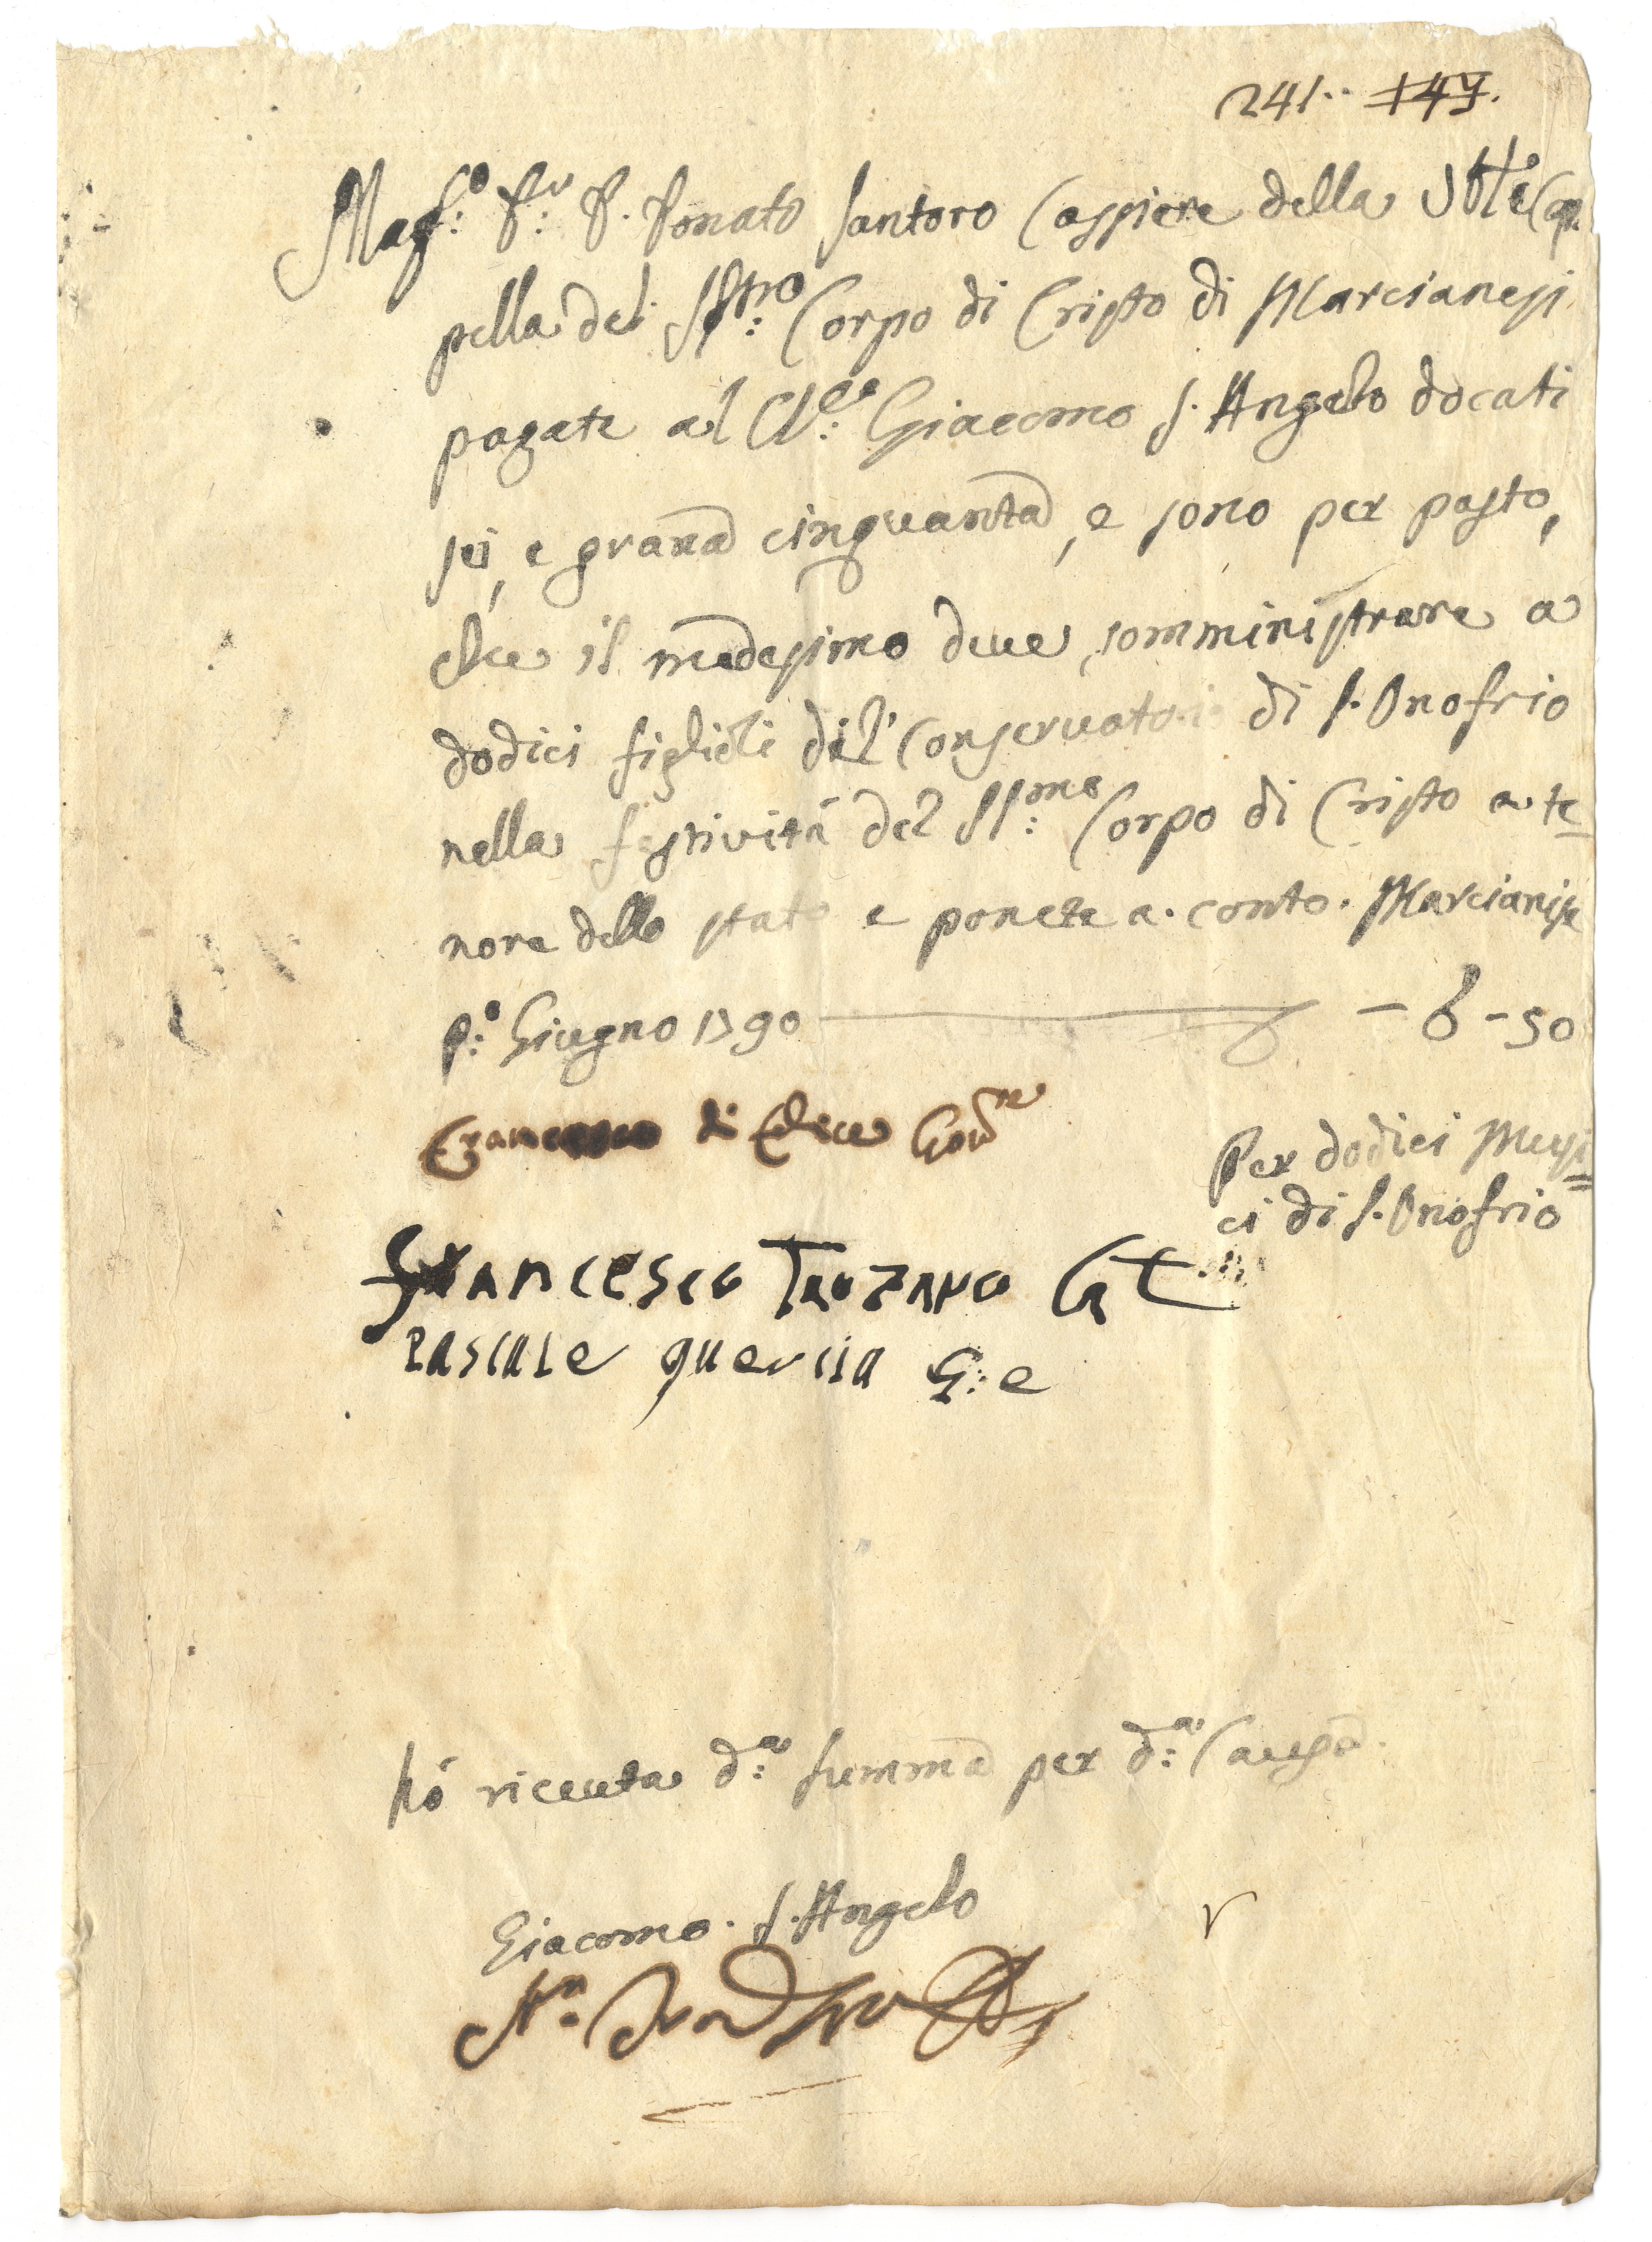 241.. 147.
Magf.co Sr. D. Donato Santoro Cassiere della Ste Cap
pella del SSmo: Corpo di Cristo di Marcianesi
pagate al Clco: Giacomo S. Angelo docati
sei, e grana cinquanta, e sono per pasto,
che il medesimo deve somministrare a
dodici figlioli del Conservatorio di S. Onofrio
nella festività del SSmo: Corpo di Cristo a te=
nore dello stato e ponete a conto. Marcianise
po: Giugno 1790 — 6 - 50
Francesco di Felice Govre
Per dodici Musi=
ci di S. Onofrio
Francesco
Pascale quercia G:e
hò riceuta da: summa per da: Causa.
Giacomo. S. Angelo